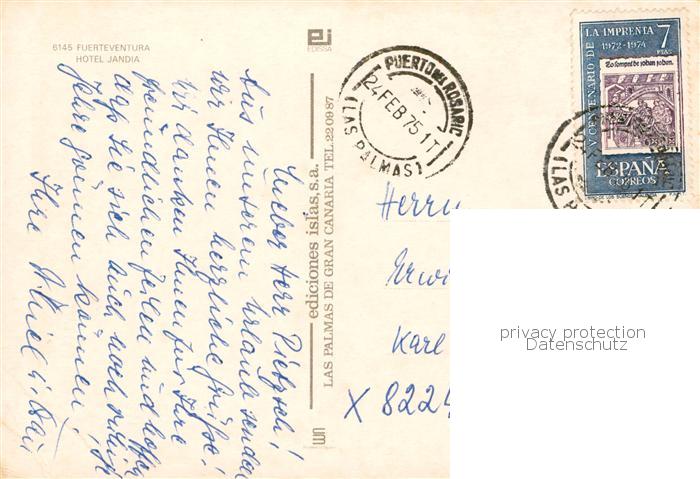 6145 FUERTEVENTURA
HOTEL JANDIA
EDISSA
Lieber Herr Pietzsch!
Aus unserem Urlaub senden
wir Ihnen herzliche Grüße.
Wir danken Ihnen für Ihre
freundlichen Zeilen und hoffen
daß Sie sich auch noch
Jahre gönnen können!
Ihre
ediciones islas, s.a.
LAS PALMAS DE GRAN CANARIA TEL. 22 09 87
PUERTO DEL ROSARIO
24 FEB 75 1T
(LAS PALMAS)
V CENTENARIO DE LA IMPRENTA
1972-1974
7
PTAS
ESPAÑA
CORREOS
(LAS P
Herrn
Erwi
Karl
X 8224
privacy protection
Datenschutz